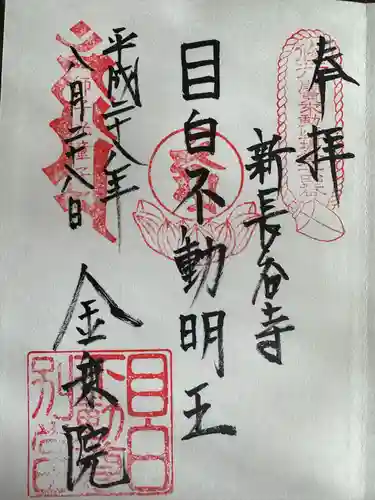 奉拝
新長谷寺
目白不動明王
平成二十八年
八月二十八日
金乗院
目白
不動
別当